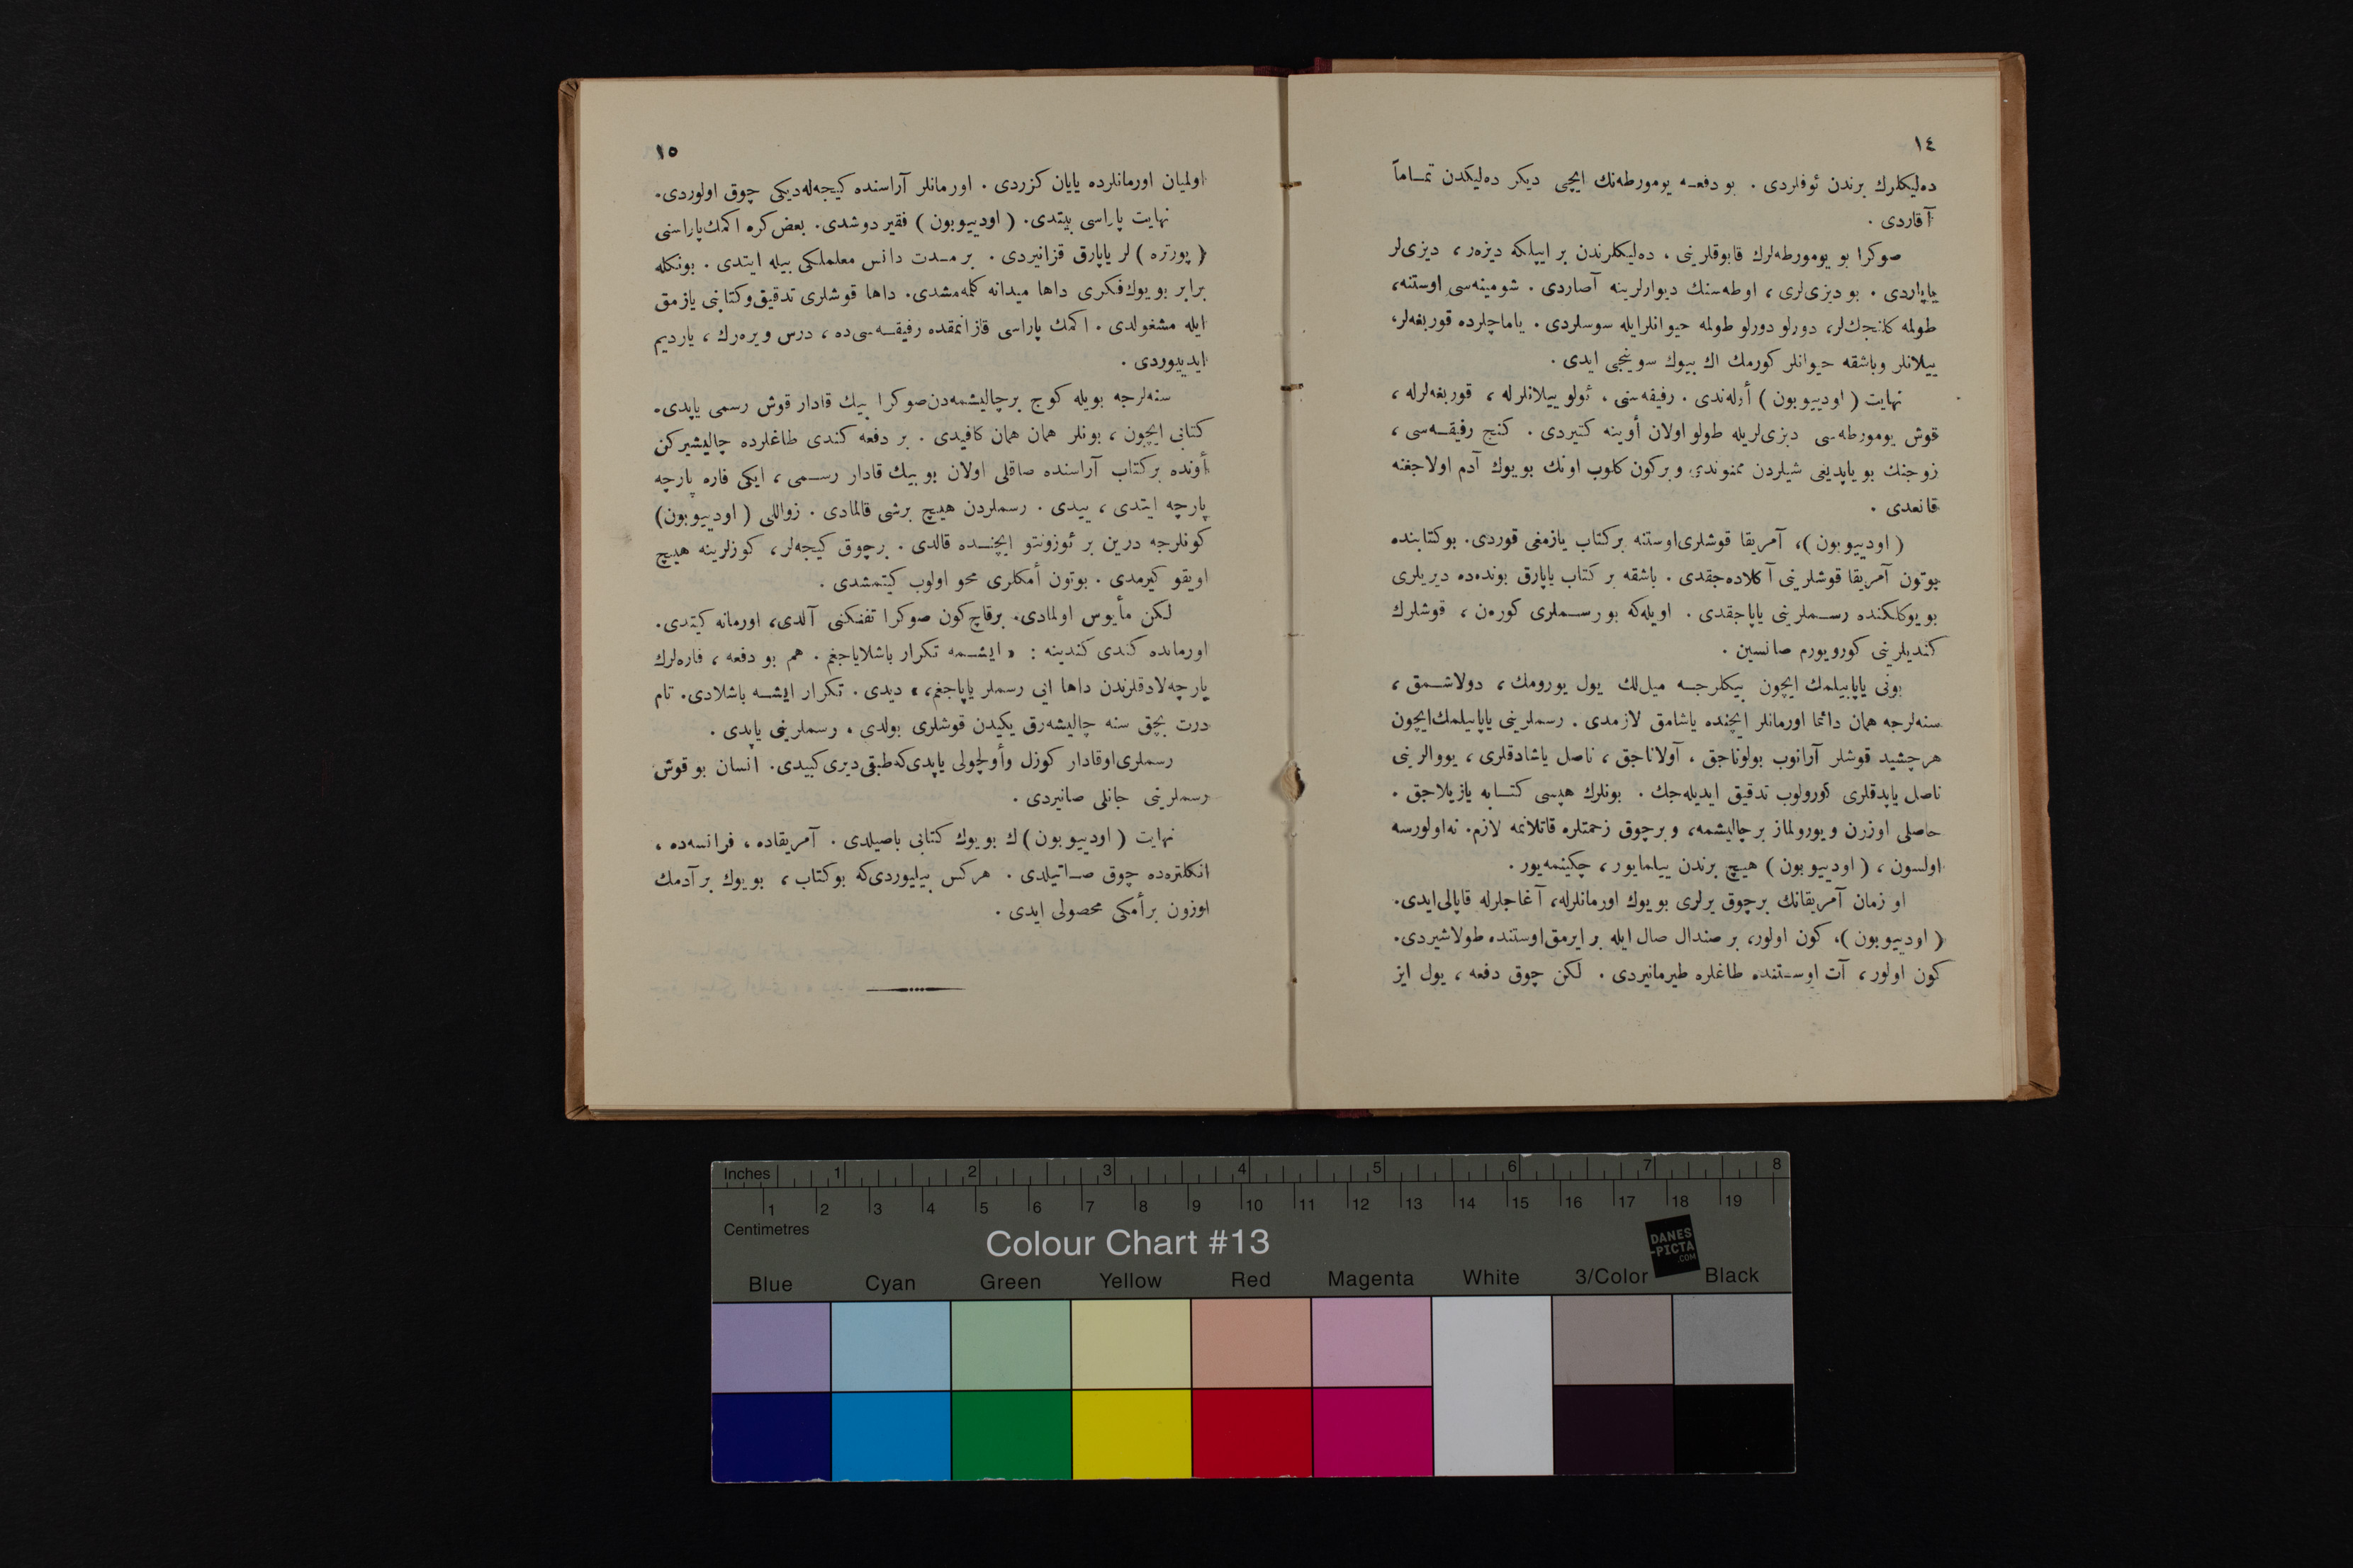 ١٤
ده‌لیكلرك برندن ئوفلردی . بو دفعـه یومورطه‌نك ایچی دیكر ده‌لیكدن تمـاماً
آقاردی .
صوكرا بو یومورطه‌لرك قابوقلرینی ، ده‌لیكلرندن بر ایپلكه دیزه‌ر ، دیزی‌لر
یاپاردی . بو دیزی‌لری ، اوطه‌سنك دیوارلرینه آصاردی . شومینه‌سی اوستنه،
طولمه كلنجك‌لر، دورلو دورلو طولمه حیوانلرایله سوسلردی . یاماچلرده قوربغه‌لر،
ییلانلر وباشقه حیوانلر كورمك اك بیوك سوینجی ایدی .
نهایت ( اودییوبون ) أولەندی . رفیقه‌سنی ، ئولو ییلانلرله ، قوربغه‌لرله ،
قوش یومورطه‌سی دیزی‌لریله طولو اولان أوینه كتیردی . كنج رفیقـه‌سی ،
زوجنك بو یاپدیغی شیلردن ممنوندی وبركون كلوب اونك بویوك آدم اولاجغنه
قانعدی .
( اودییوبون )، آمریقا قوشلری‌اوستنه بركتاب یازمغی قوردی. بوكتابنده
بوتون آمریقا قوشلرینی آكلاده‌جقدی . باشقه بر كتاب یاپارق بونده‌ده دیریلری
بویوكلكنده رسـملرینی یاپاجقدی . اویله‌كه بو رسـملری كوره‌ن ، قوشلرك
كندیلرینی كورویورم صانسین .
بونی یاپابیلمك ایچون بیكلرجـه میل‌لك یول یورومك ، دولاشـمق ،
سنه‌لرجه همان دائما اورمانلر ایچنده یاشامق لازمدی . رسملرینی یاپابیلمك‌ایچون
هرچشید قوشلر آرانوب بولوناجق ، آولاناجق ، ناصل یاشادقلری ، یووالرینی
ناصل یاپدقلری كورولوب تدقیق ایدیله‌جك . بونلرك هپسی كتـابه یازیلاجق .
حاصلی اوزون ویورولماز برچالیشمه، وبرچوق زحمتلره قاتلانمه لازم. نه‌اولورسه
اولسون ، ( اودییوبون ) هیچ برندن ییلمایور ، چكینمه‌یور .
او زمان آمریقانك برچوق یرلری بویوك اورمانلرله، آغاجلرله قاپالی‌ایدی.
( اودییوبون )، كون اولور، بر صندال صال ایله بر ایرمق‌اوستنده طولاشیردی.
كون اولور ، آت اوسـتنده طاغلره طیرمانیردی . لكن چوق دفعه ، یول ایز
١٥
اولمیان اورمانلرده یایان كزردی . اورمانلر آراسنده كیجه‌له‌دیكی چوق اولوردی.
نهایت پاراسی بیتدی. ( اودییوبون ) فقیر دوشدی. بعض كره اكمك پاراسنی
( پورتره ) لر یاپارق قزانیردی . بر مـدت دانس معلملكی بیله ایتدی . بونكله
برابر بویوك فكری داها میدانه كلمه‌مشدی. داها قوشلری تدقیق وكتابنی یازمق
ایله مشغولدی . اكمك پاراسی قازانمقده رفیقـه‌سی‌ده ، درس ویره‌رك ، یاردیم
ایدییوردی .
سنه‌لرجه بویله كوج برچالیشمه‌دن‌صوكرا بیك قادار قوش رسمی یاپدی.
كتابی ایچون ، بونلر همان همان كافیدی . بر دفعه كندی طاغلرده چالیشیركن
أونده بركتاب آراسنده صاقلی اولان بو بیك قادار رسـمی ، ایكی فاره پارچه
پارچه ایتدی ، ییدی . رسملردن هیچ برشی قالمادی . زواللی ( اودییوبون)
كونلرجه درین بر ئوزونتو ایچنـده قالدی . برچوق كیجه‌لر، كوزلرینه هیچ
اویقو كیرمدی . بوتون أمكلری محو اولوب كیتمشدی .
لكن مأیوس اولمادی. برقاچ كون صوكرا تفنكنی آلدی، اورمانه كیتدی.
اورمانده كندی كندینه : « ایشـمه تكرار باشلایاجغم . هم بو دفعه ، فاره‌لرك
پارچه‌لادقلرندن داها ایی رسملر یاپاجغم، » دیدی . تكرار ایشـه باشلادی. تام
درت بچق سنه چالیشه‌رق یكیدن قوشلری بولدی ، رسملرینی یاپدی .
رسملری‌اوقادار كوزل وأولچولی یاپدی‌كه‌طبقی‌دیری‌كبیدی. انسان بو قوش
رسملرینی جانلی صانیردی .
نهایت ( اودییوبون )ك بویوك كتابی باصیلدی . آمریقاده ، فرانسه‌ده ،
انكلتره‌ده چوق صـاتیلدی . هركس بیلیوردی‌كه بوكتاب ، بویوك برآدمك
اوزون برأمكی محصولی ایدی .
Inches 1 2 3 4 5 6 7 8
1 2 3 4 5 6 7 8 9 10 11 12 13 14 15 16 17 18 19
Centimetres
Colour Chart #13
DANES
-PICTA
.COM
Blue Cyan Green Yellow Red Magenta White 3/Color Black